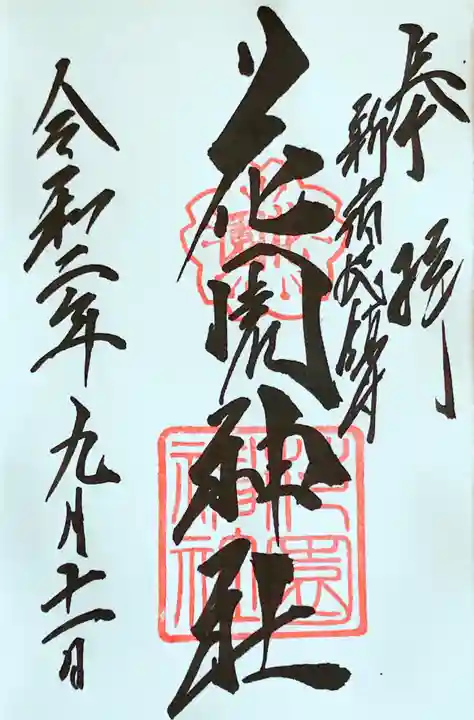 奉拝
新宿総鎮守
花園神社
花園神社
令和二年九月十一日